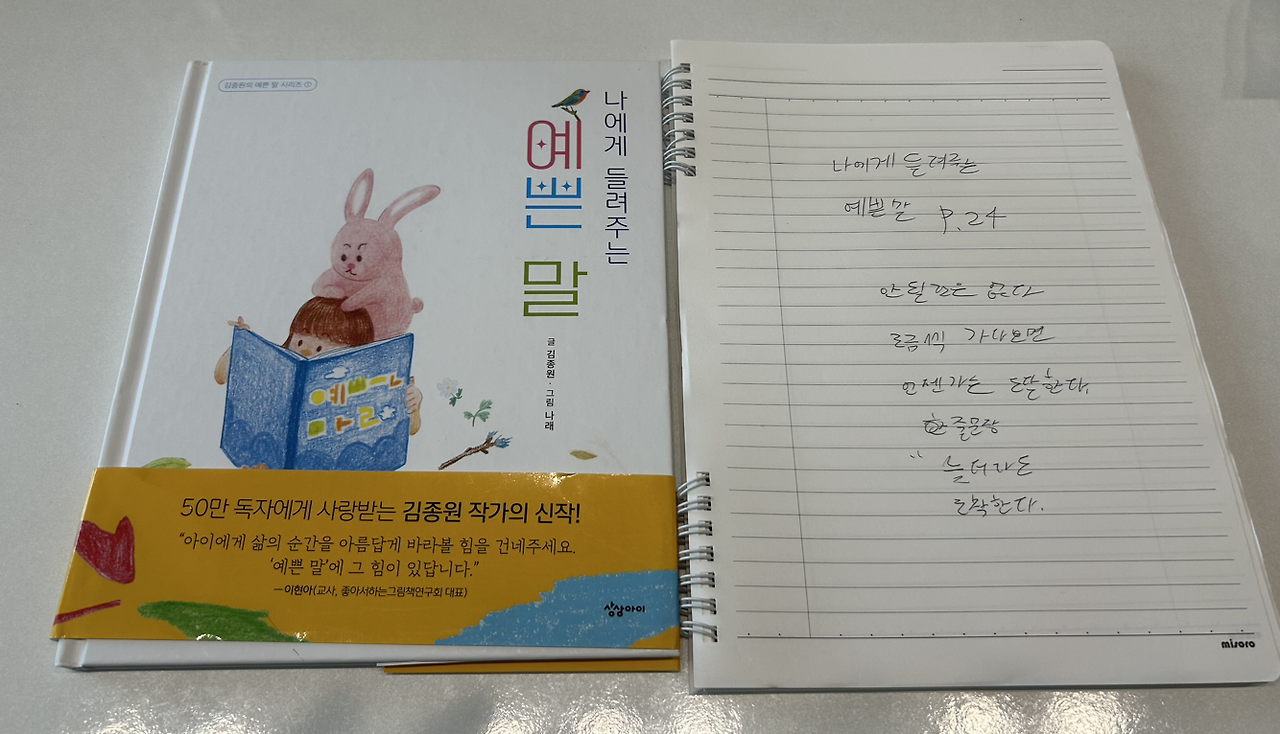 김종원의 예쁜 말 시리즈 ①
나에게 들려주는
예쁜 말
글 김종원 · 그림 나래
예쁜
말
50만 독자에게 사랑받는 김종원 작가의 신작!
“아이에게 삶의 순간을 아름답게 바라볼 힘을 건네주세요.
‘예쁜 말’에 그 힘이 있답니다.”
― 이현아(교사, 좋아서하는그림책연구회 대표)
상상아이
나에게 들려주는
예쁜 말 P.24
안 될 없다
조금씩 가다보면
언젠가는 도달한다.
한 줄 문장
" 늦더라도
도착한다.
misoro